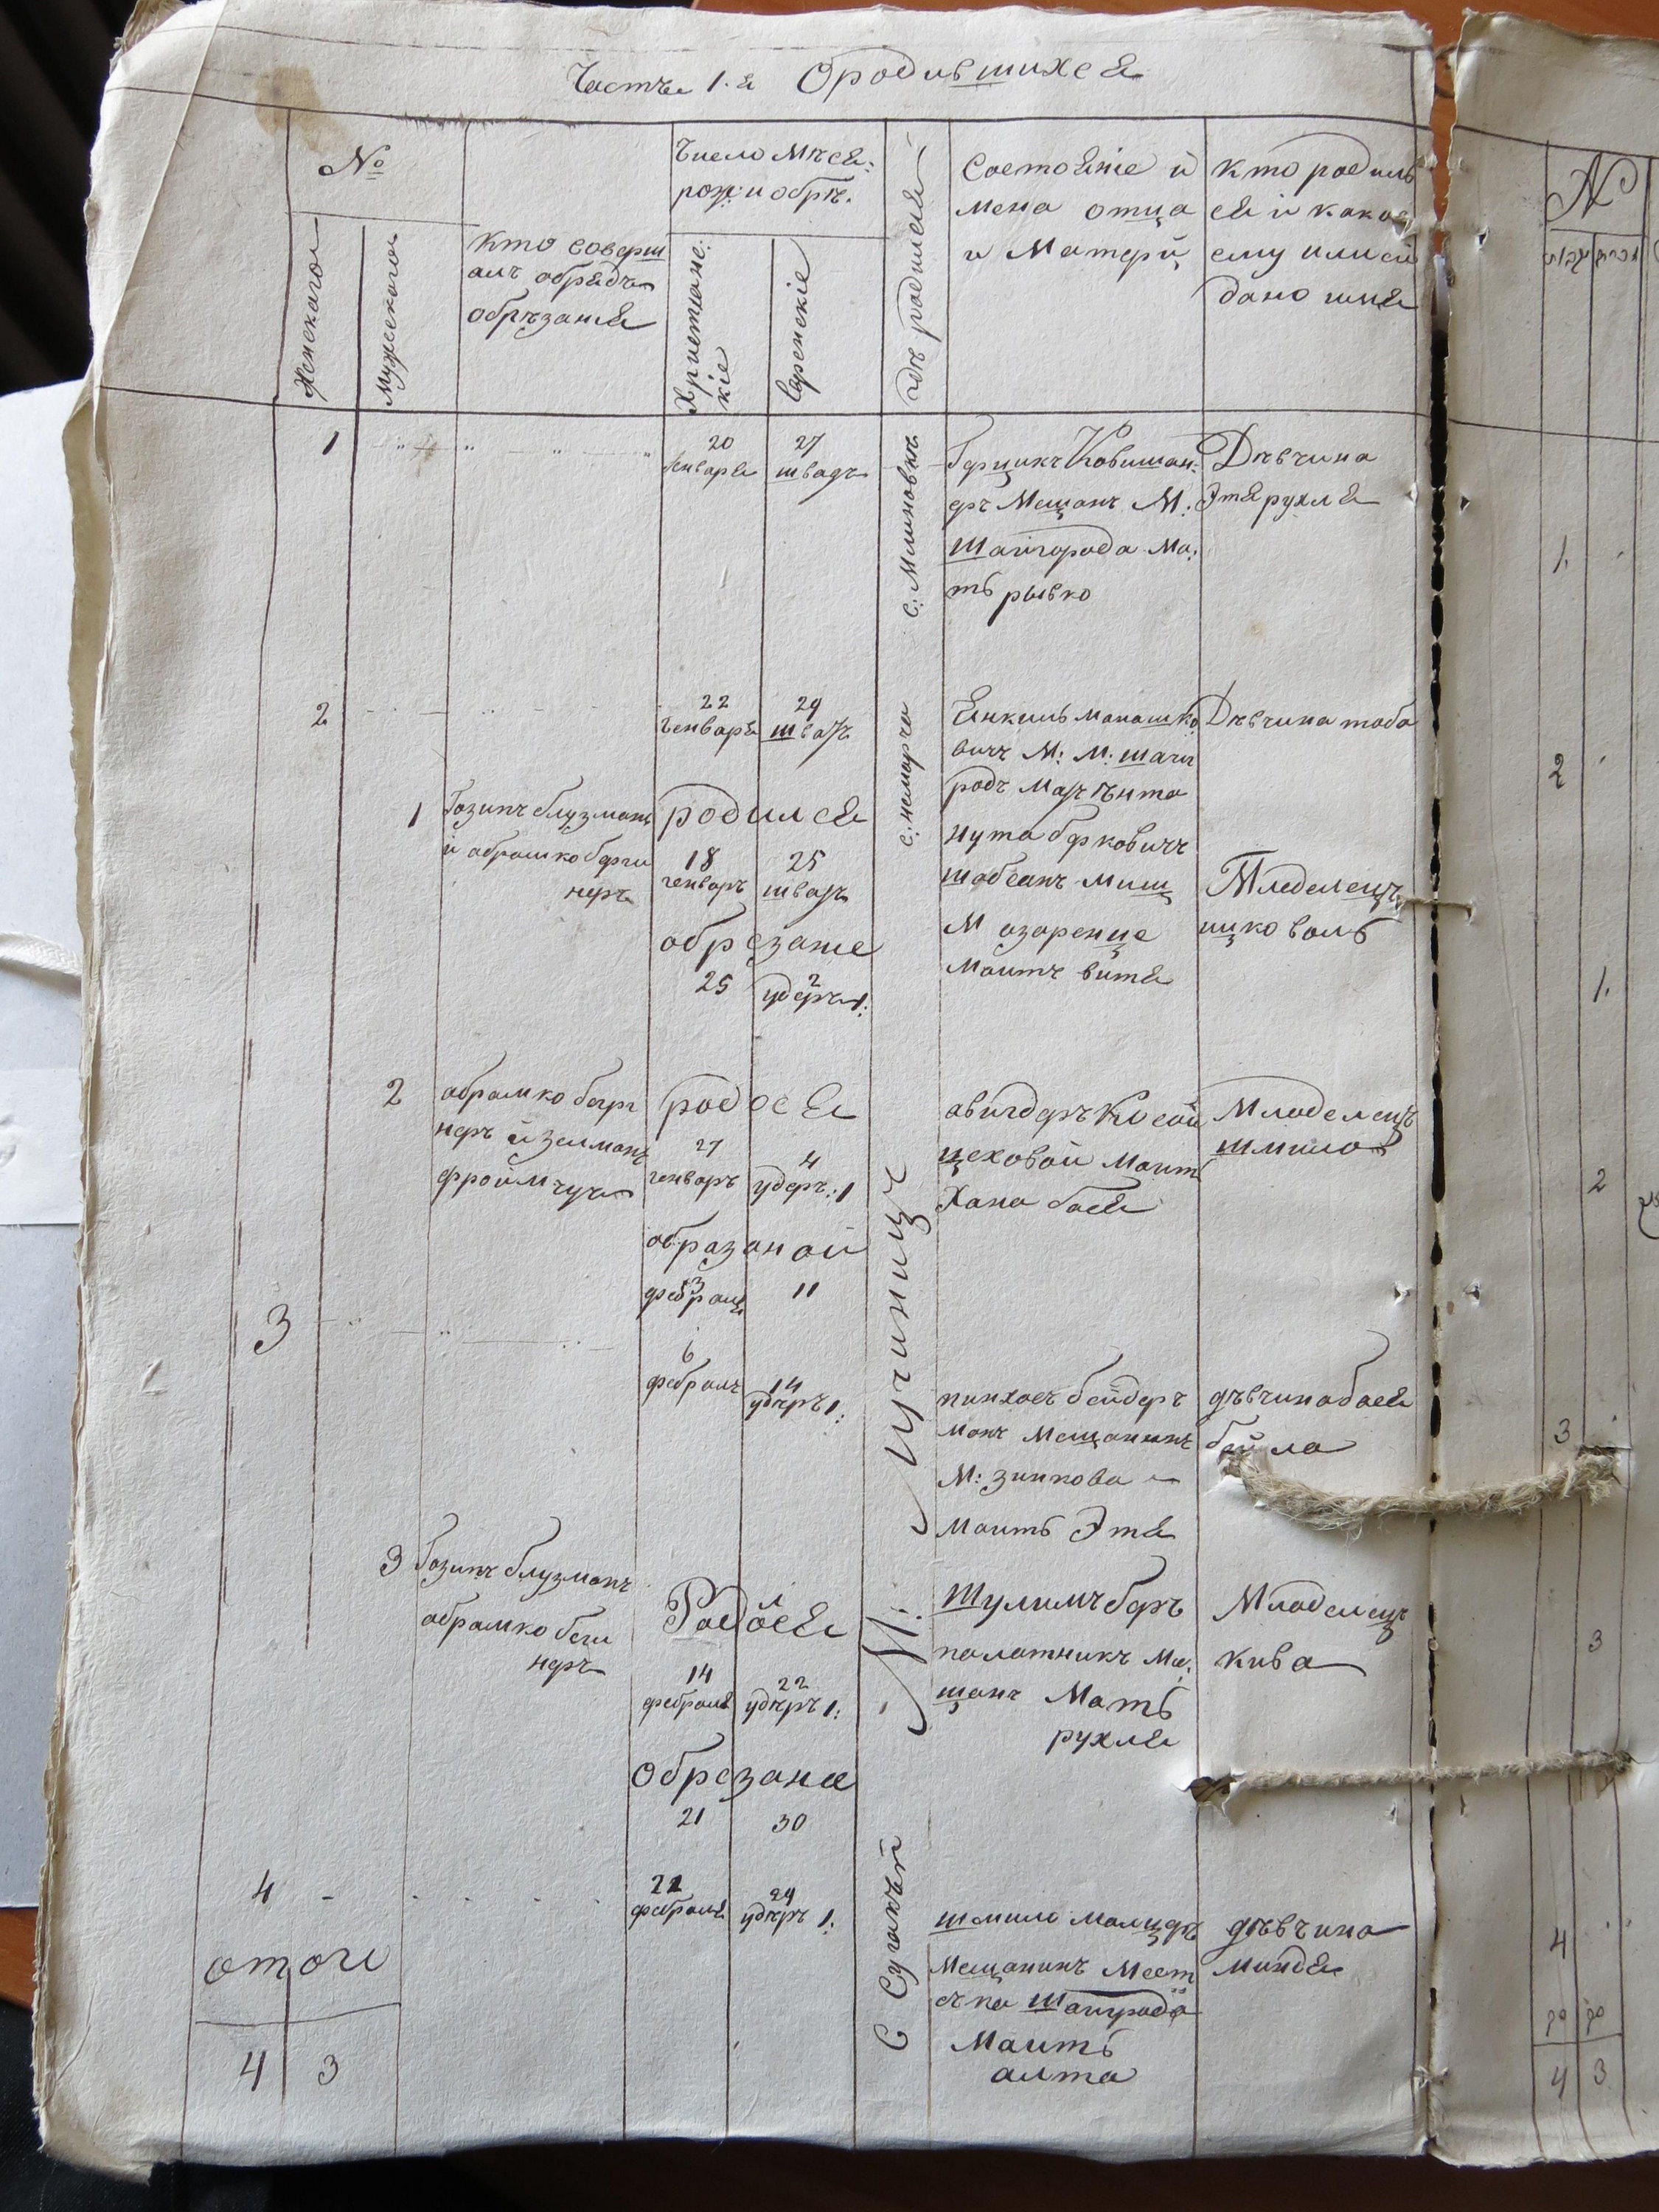 Часть 1.я Ородившихся
№
Женского
Мужеского
Кто соверш
алъ обрядъ
обрѣзанія
Число Мѣся:
рож: и обрѣ.
Христіанс:
кіе
Еврейскіе
гдѣ родился
Состояніе и
мена отца
и Матери
Кто родилъ
ся и какое
ему или ей
дано имя
1
20
Января
27
швадъ
с: Млиновкѣ
Берщикъ Ковишан:
еръ Мещанъ М:
Шаигорода Ма:
ть рывко
Дѣвчина
Этя рухля
2
22
генваря
29
швадъ
Янкиль манашко
вичъ М: М: шаги
родъ
Дѣвчина тоба
1
Гозипъ блузманъ
и абрамко берги
неръ
родился
18
генваръ
25
швадъ
обрезание
25
2
удеръ 1:
нута берковичъ
шабсанъ мищ
М озаренце
Маить витя
Младенецъ
ицко воль
2
абрамко берг
неръ и зелманъ
фроимчукъ
родося
27
генваръ
4
удеръ: 1
образаной
3
февраля
11
М: Лучинцъ
авигдеръ Косой
цеховой Маить
Хана бася
Младенецъ
шмило
3
6
февраль
14
удеръ 1:
пинхосъ бейдер
манъ Мещанинъ
М: зинкова
Маить Этя
дѣвчина бася
бейла
3
Гозипъ блузманъ
абрамко беги
неръ
Родолся
14
февраля
22
удеръ 1:
Обрезана
21
30
Шулимъ бер
палатникъ Ме:
щанъ Мать
рухля
Младенецъ
кива
4
22
февраля
29
удеръ 1:
шмило малиеръ
Мещанинъ Мест
ечка Шаиграда
Маить
алта
дѣвчина
миндя
отоги
4
3
№
1.
2
1.
2
3
3
4
4
3